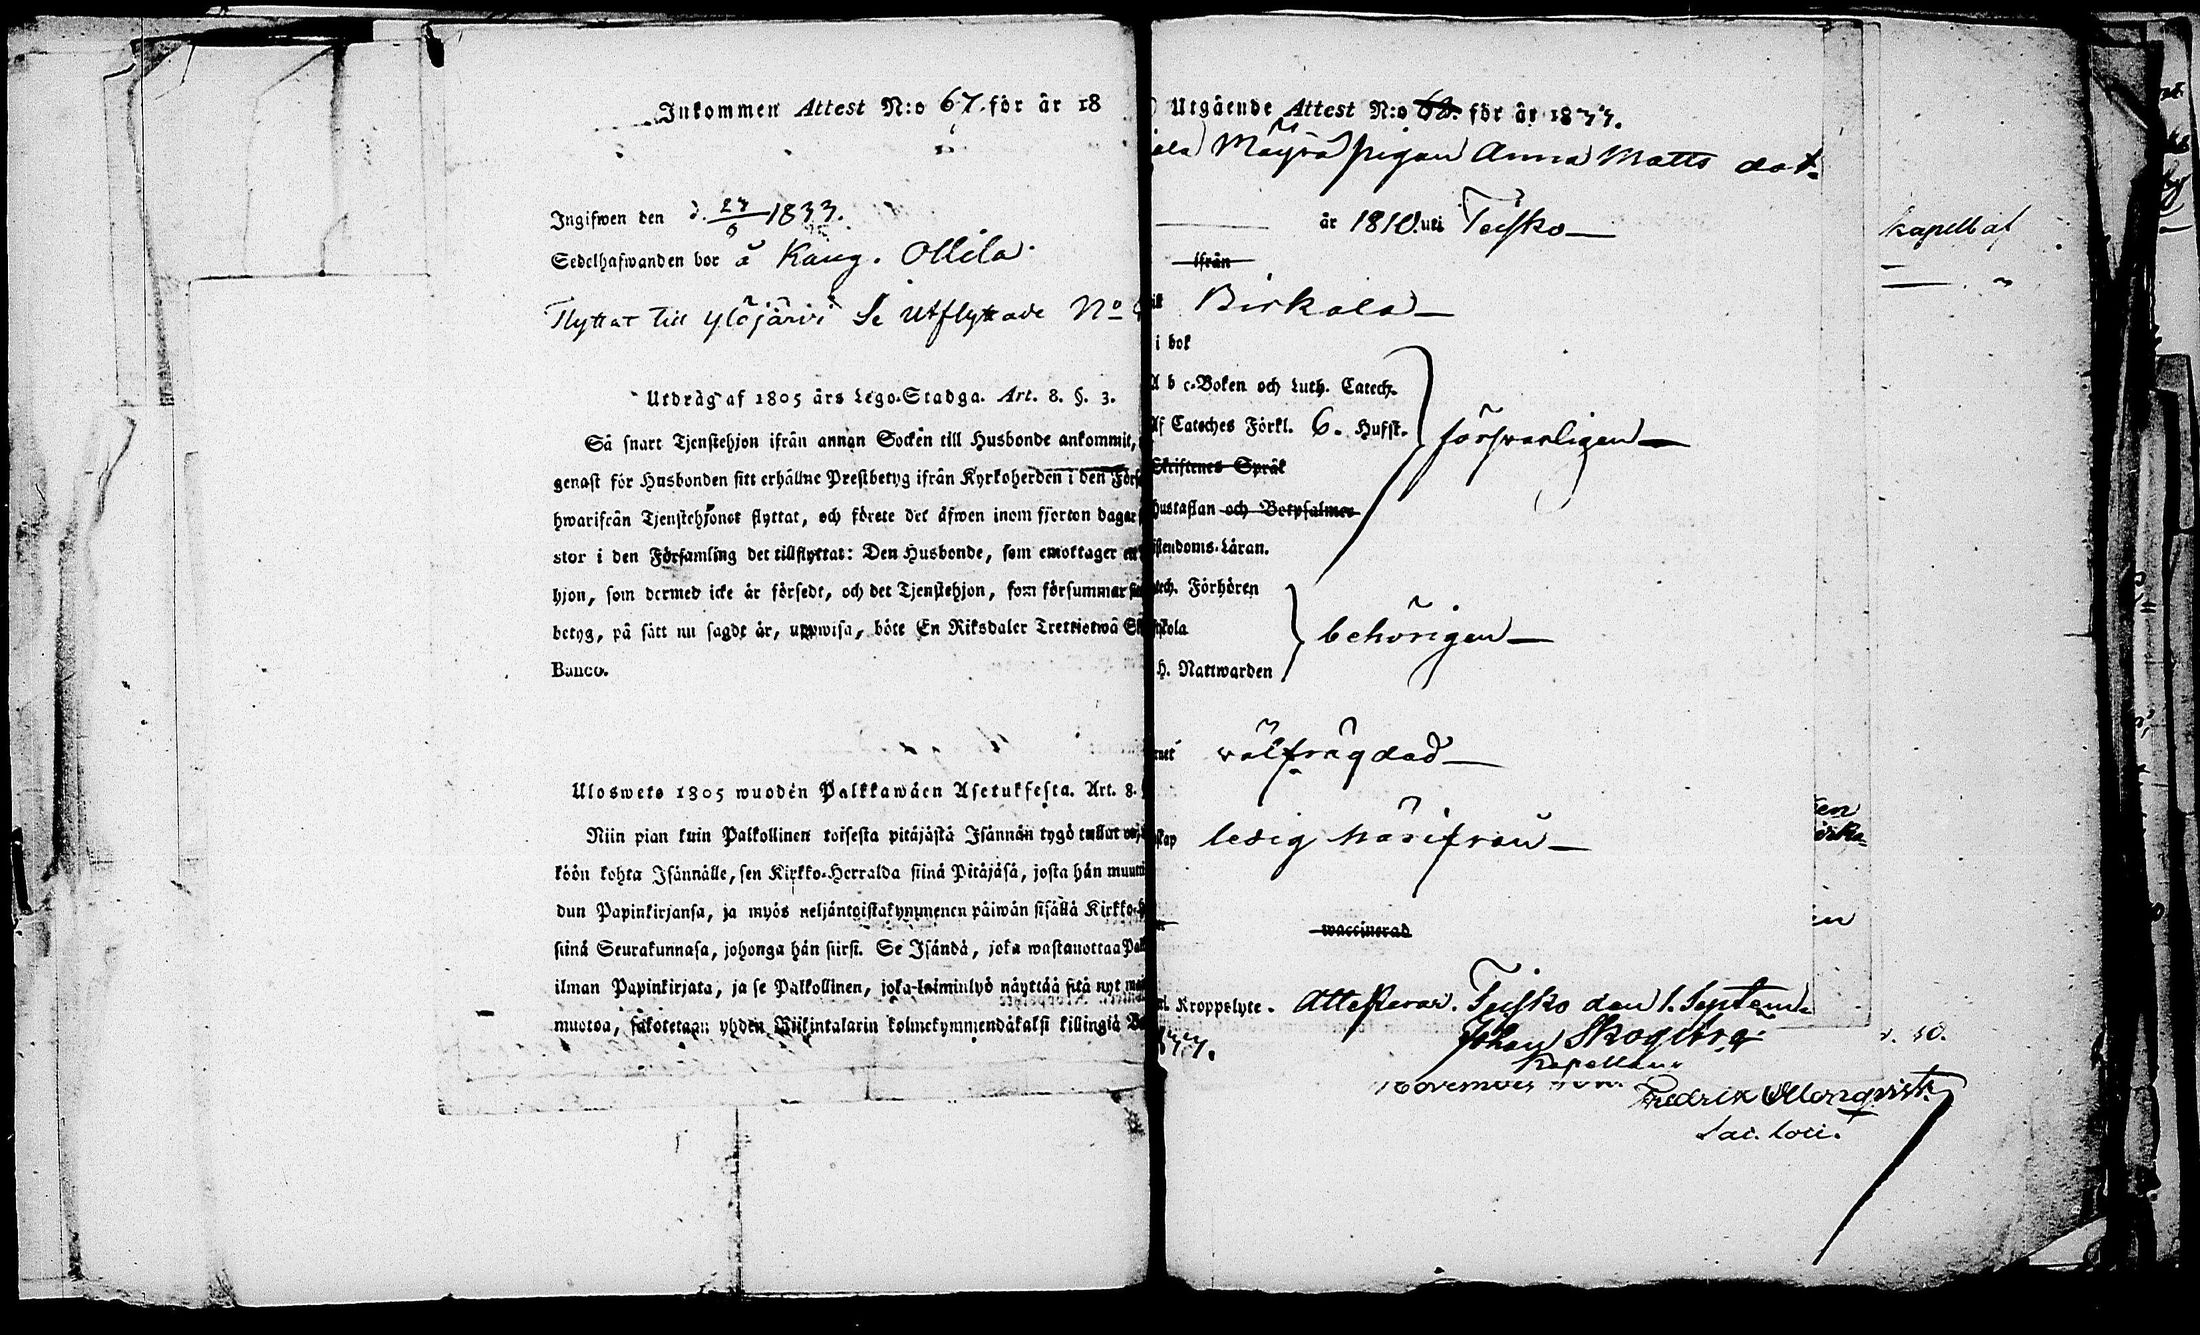 Inkommen Attest N:o 67. för år 18
Ingifwen den d. 27/6 1833.
Sedelhafwanden bor å Kang. Ollila.
Flyttat till Ylöjärvi Se Utflyttade No
Utdrag af 1805 års Lego-Stadga. Art. 8. §. 3.
Så snart Tjenstehjon ifrån annan Socken till Husbonde ankommit,
genast för Husbonden sitt erhållne Prestbetyg ifrån Kyrkoherden i den Förs
hwarifrån Tjenstehjonet flyttat, och förete det äfwen inom fjorton dagar
stor i den Församling det tillflyttat: Den Husbonde, som emottager ett
hjon, som dermed icke är försedt, och det Tjenstehjon, som försummar
betyg, på sätt nu sagdt är, uppwisa, böte En Riksdaler Trettiotwå
Banco.
Ulosweto 1805 wuoden Palkkawäen Asetuksesta. Art. 8.
Niin pian kuin Palkollinen toisesta pitäjästä Isännän tygö tullut
köön kohta Isännälle, sen Kirkko-Herralda siinä Pitäjäsä, josta hän muutt
dun Papinkirjansa, ja myös neljäntoistakymmenen päiwän sisällä Kirkko-
siinä Seurakunnasa, johonga hän siirsi. Se Isändä, joka wastanottaa Pal
ilman Papinkirjata, ja se Palkollinen, joka laiminlyö näyttää sitä nyt
muotoa, sakotetaan yhden Riikintalarin kolmekymmendäkaksi killingiä
Utgående Attest N:o 62. för år 1833.
Mäyrä pigan Anna Matts dot.
år 1810. uti Teisko
ifrån
till Birkala
i bok
A b c-Boken och Luth. Catech.
Af Cateches Förkl. 6. Hufst. försvarligen
Skriftenes Språk
Hustaflan och Botpsalmer
istendoms-Läran.
tech. Förhören
skola behörigen
H. Nattwarden
rnet välfrägdad
skap ledig härifrån
waccinerad
Kroppslyte. Attesterar. Teisko den 1. Septem-
833.
Johan Skogberg
Kapellan
November
Fredrik Mörtqvist
Sac. loci.
kapell af
en
irka-
en